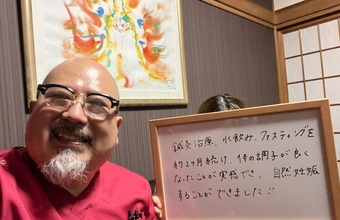 鍼灸治療、水飲み、ファスティングを
約2ヶ月続け、体の調子が良く
なったことが実感でき、自然妊娠
することができました!!